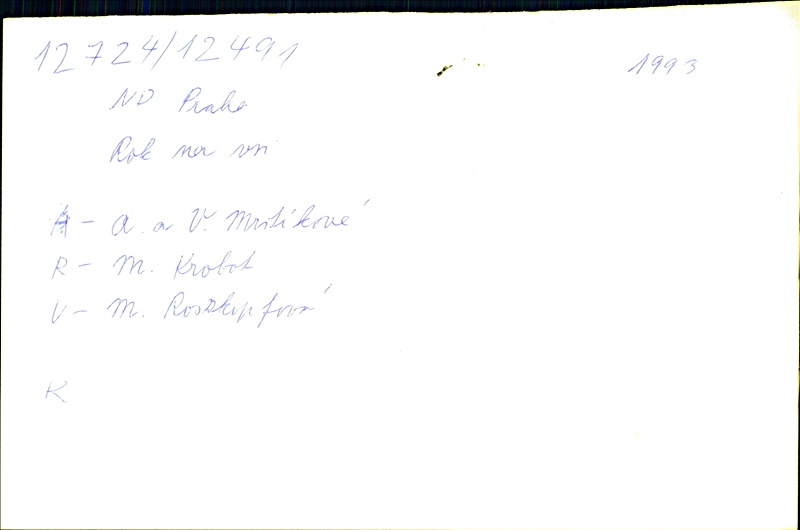 12724/12491
1993
ND Praha
Rok na vsi
A - A. a V. Mrštíkové
R - M. Krobot
V - M. Roszkopfová
K